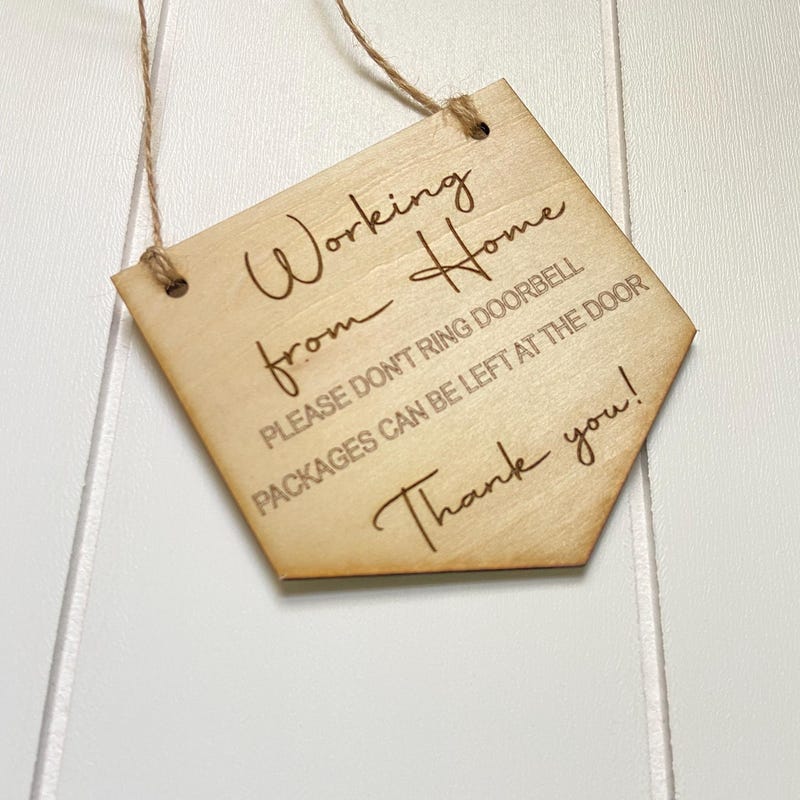 Working
from Home
PLEASE DON'T RING DOORBELL
PACKAGES CAN BE LEFT AT THE DOOR
Thank you!